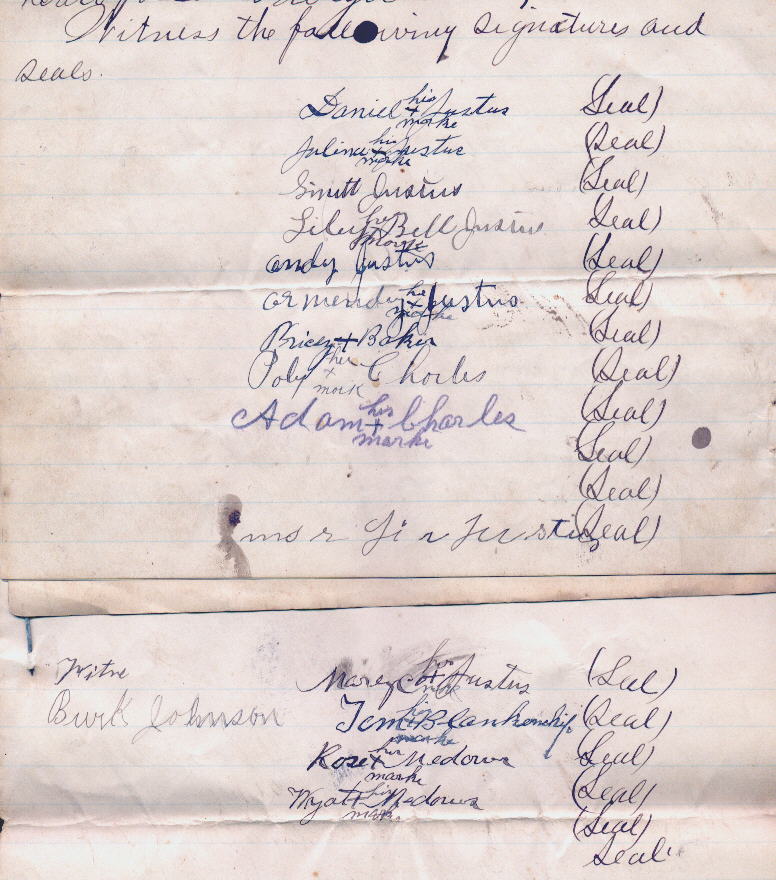 Witness the following signatures and
seals.
Daniel his + marke Justus (Seal)
Julina her + marke Justus (Seal)
Smitt Justus (Seal)
Liley her marke Bell Justus (Seal)
andy Justus (Seal)
ormendy his + marke Justus (Seal)
Bricey + Baker (Seal)
Poly her + mork Charles (Seal)
Adam his + marke Charles (Seal)
(Seal)
(Seal)
Justus (Seal)
Witne Marey her + Justus (Seal)
Burk Johnson Tom his + marke Blankenship (Seal)
Rose her + marke Medows (Seal)
Wyatt his + mark Medows (Seal)
(Seal)
Seal